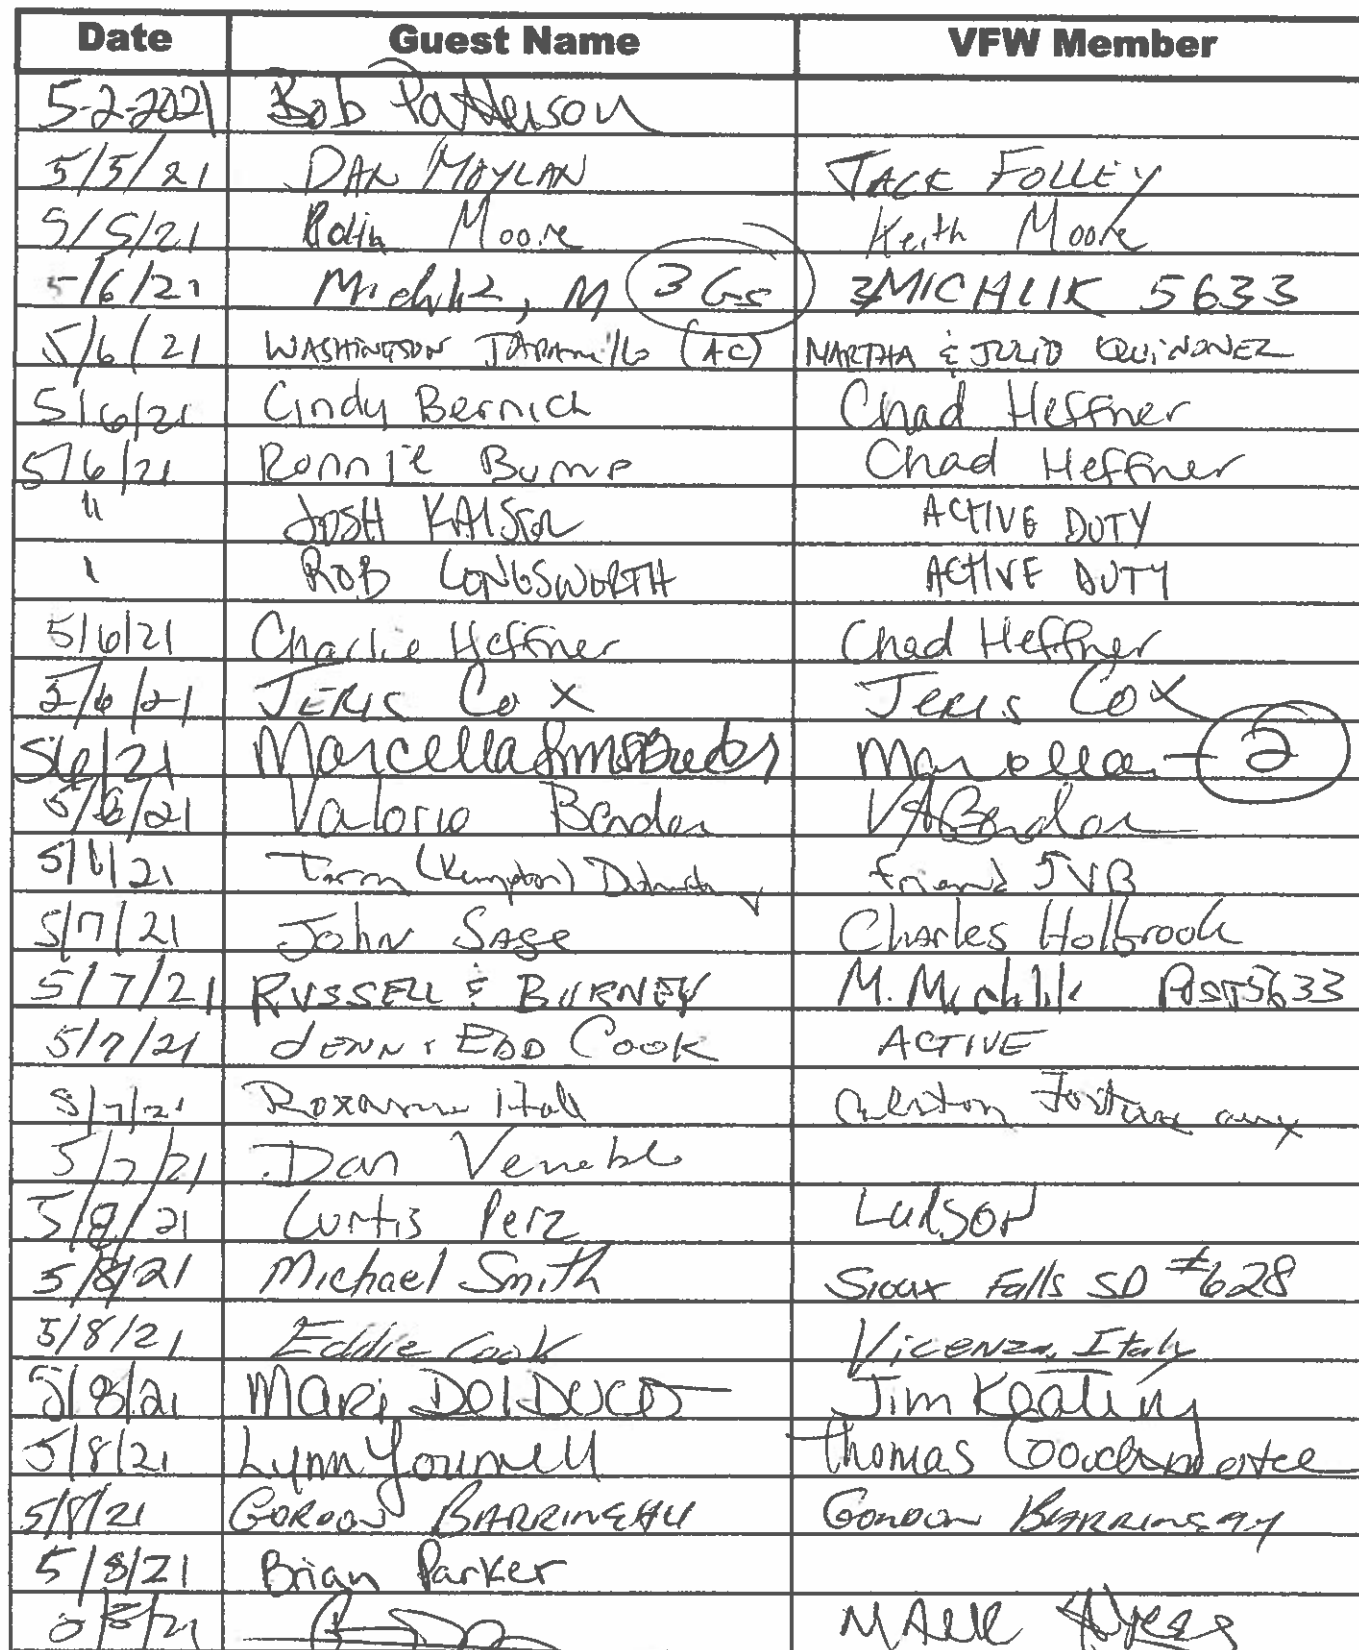 Date Guest Name VFW Member
5-2-2021 Bob Patterson
5/5/21 DAN MOYLAN JACK FOLLEY
5/5/21 Moore Keith Moore
5/6/21 M 3 Gs MICHLIK 5633
5/6/21 WASHINGTON JARAMILLO (AC) MARTHA & JULIO QUINONEZ
5/6/21 Cindy Bernich Chad Heffner
5/6/21 Ronnie Bump Chad Heffner
" JOSH ACTIVE DUTY
ROB LONGSWORTH ACTIVE DUTY
5/6/21 Charlie Heffner Chad Heffner
5/6/21 JERIS COX JERIS COX
5/6/21 Marcella 2
5/6/21 Valorie Bender VABender
5/6/21 (Kempton) Friend JVB
5/7/21 JOHN SAGE Charles Holbrook
5/7/21 RUSSELL & BURNEY M. Michlik POST 5633
5/7/21 JENN & EDD COOK ACTIVE
5/7/21 Roxanne Hall aux
5/7/21 Dan Venable
5/8/21 Curtis Perz LADSON
5/8/21 Michael Smith Sioux Falls SD #628
5/8/21 Eddie Cook Vicenza, Italy
5/8/21 MARi DelDUCO Jim Keating
5/8/21 Lynn Younell Thomas
5/8/21 GORDON GORDON
5/8/21 Brian Parker